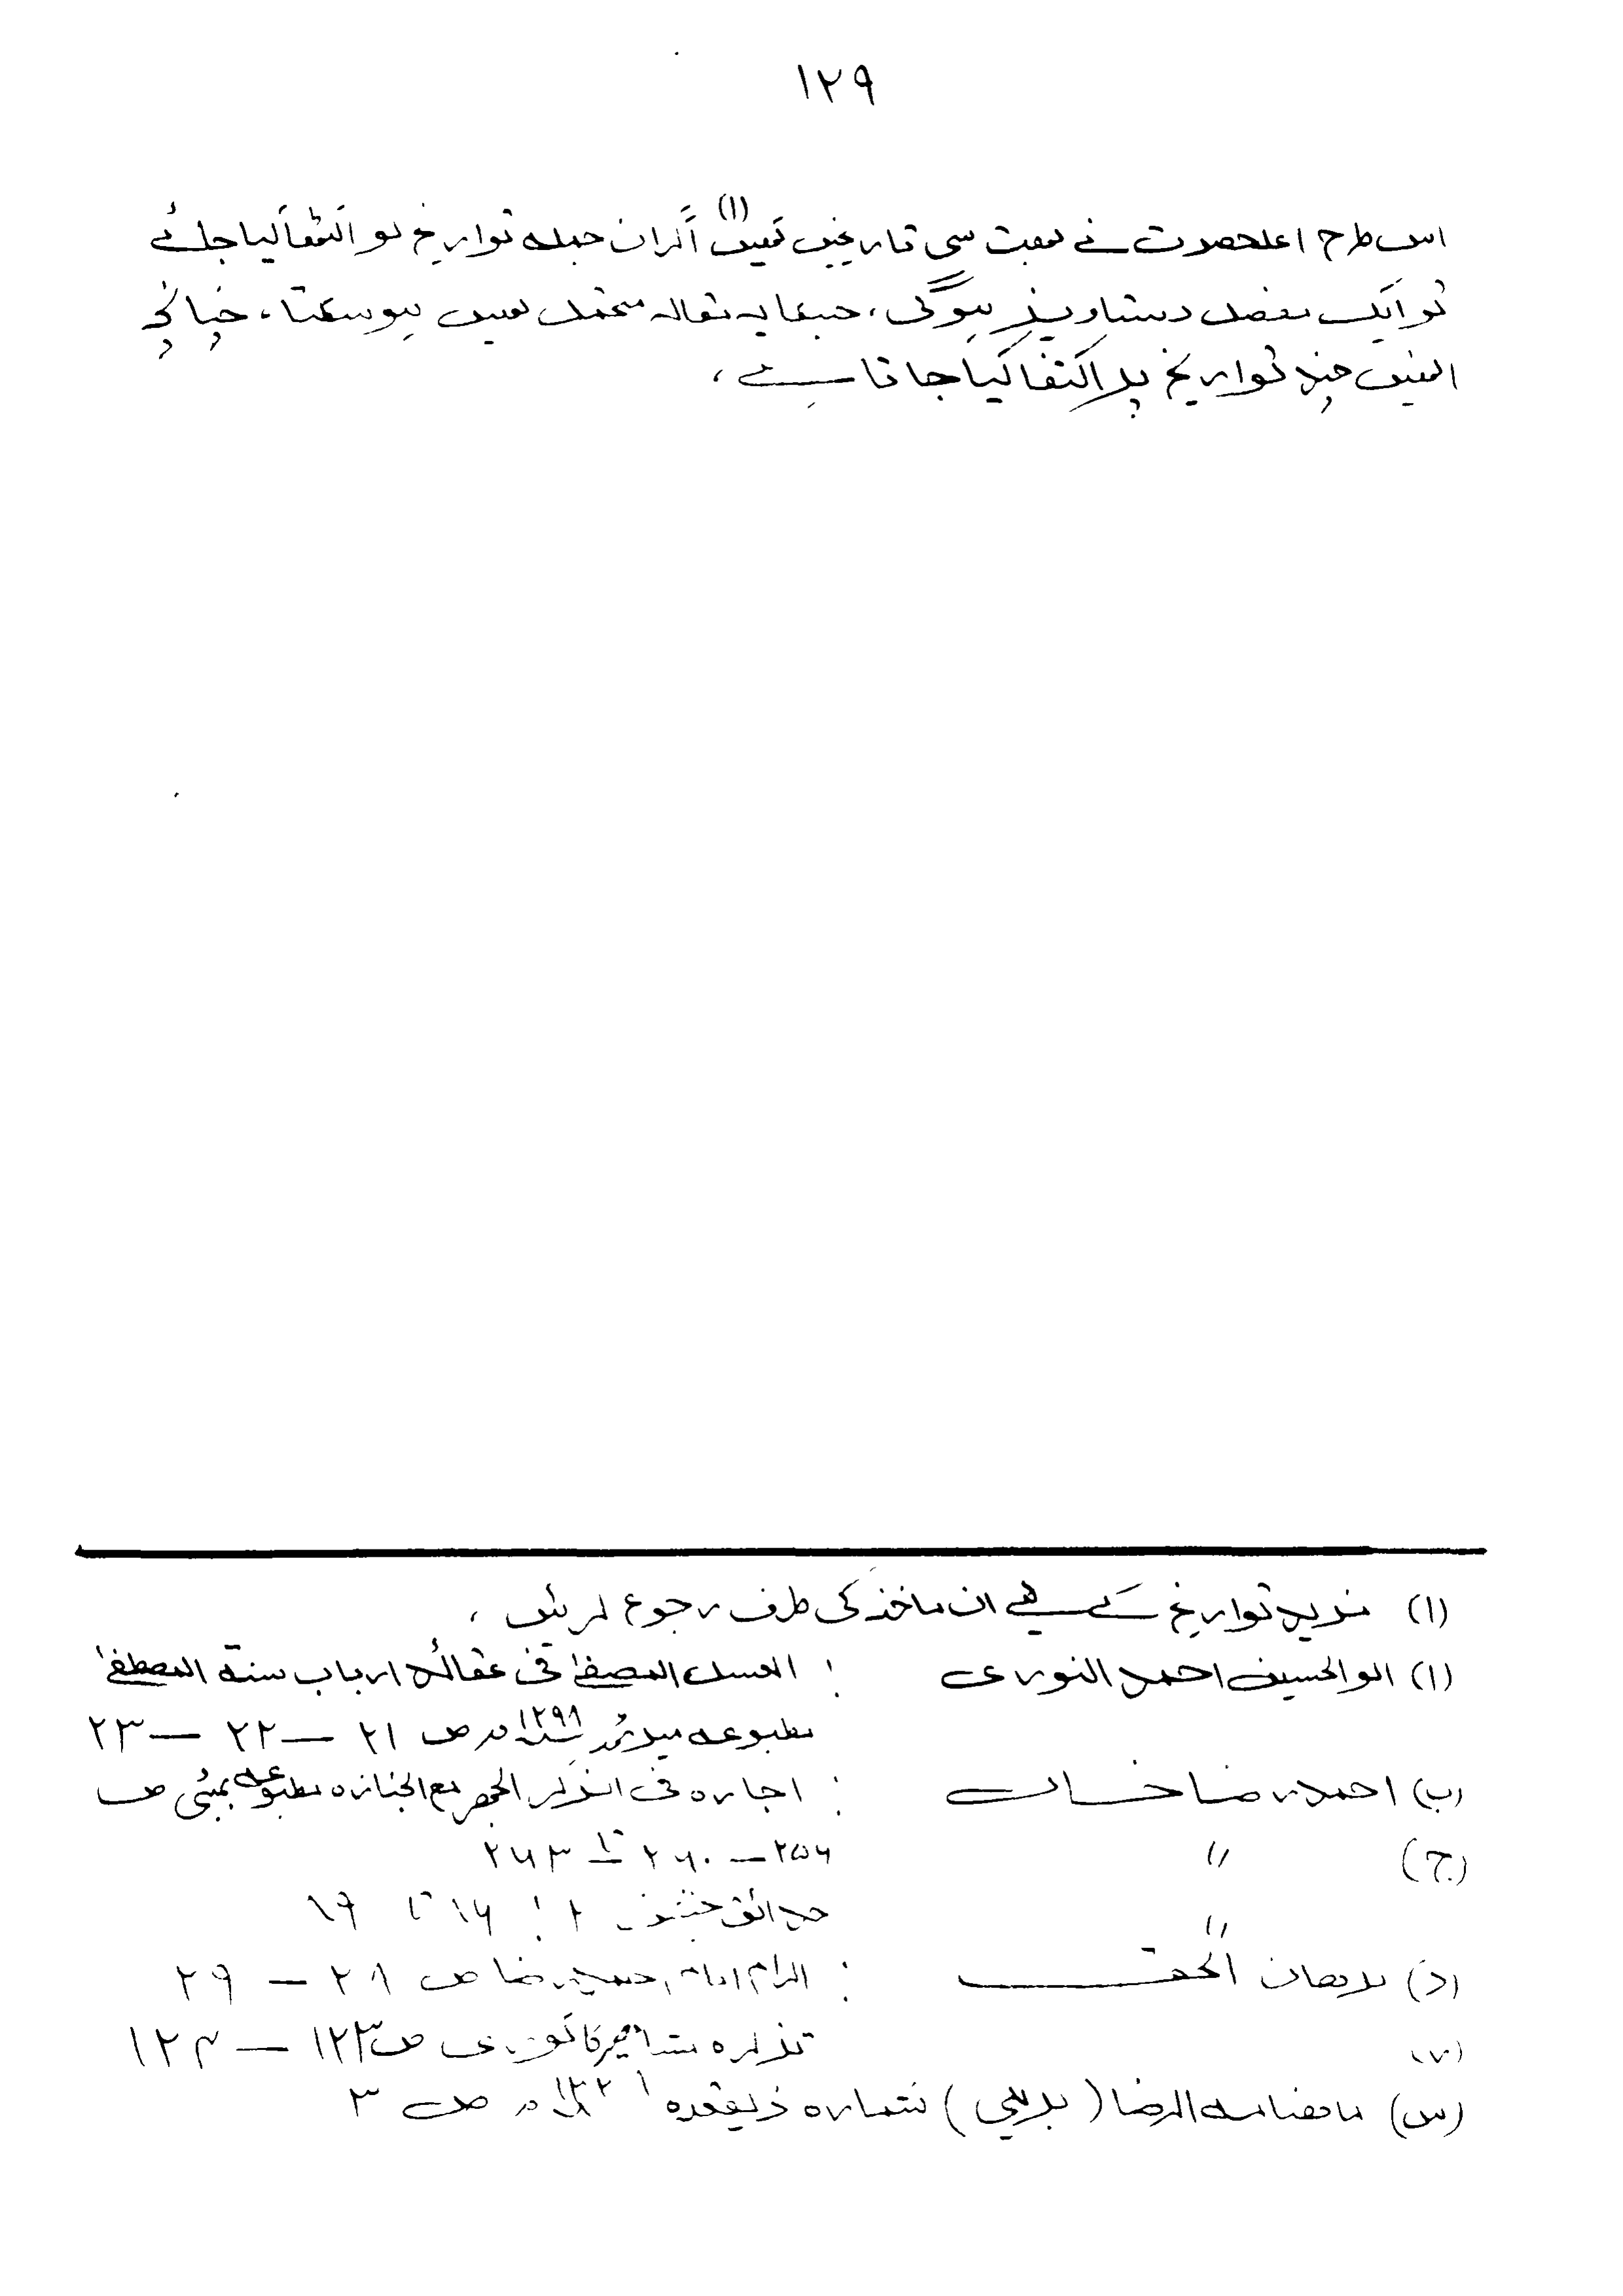 ۱۲۹
اس طرح اعلحضرت نے بہت سی تاریخیں کہیں (۱) اگر ان جملہ تواریخ کو اکٹھا کیا جائے
تو ایک مفصل دستاویز ہوگی، جسکا یہ مقالہ متحمل نہیں ہو سکتا، چنانچہ
انھیں چند تواریخ پر اکتفا کیا جاتا ہے،
(۱) مزید تواریخ کے لیے ان ماخذ کی طرف رجوع کریں،
(ا) ابو الحسین احمد النوری : العسل المصفیٰ فی عقائد ارباب سنۃ المصطفیٰ
مطبوعہ میرٹھ ۱۲۹۸ھ ص ۲۱ — ۲۲ — ۲۳
(ب) احمد رضا خاں : اجارہ فی الذکر الجھر مع الجنازہ مطبوعہ بمبئی ص
(ج) ״ ۲۵۶ — ۲۶۰ تا ۲۶۳
״ حدائق بخشش ۱۶ تا ۱۹
(د) برھان الحق : اکرام امام احمد رضا ص ۲۸ — ۲۹
(ر) تذکرہ مشاھیر کاکوروی ص ۱۲۳ — ۱۲۴
(س) ماھنامہ الرضا (بریلی) شمارہ ذیقعدہ ھ ص ۳